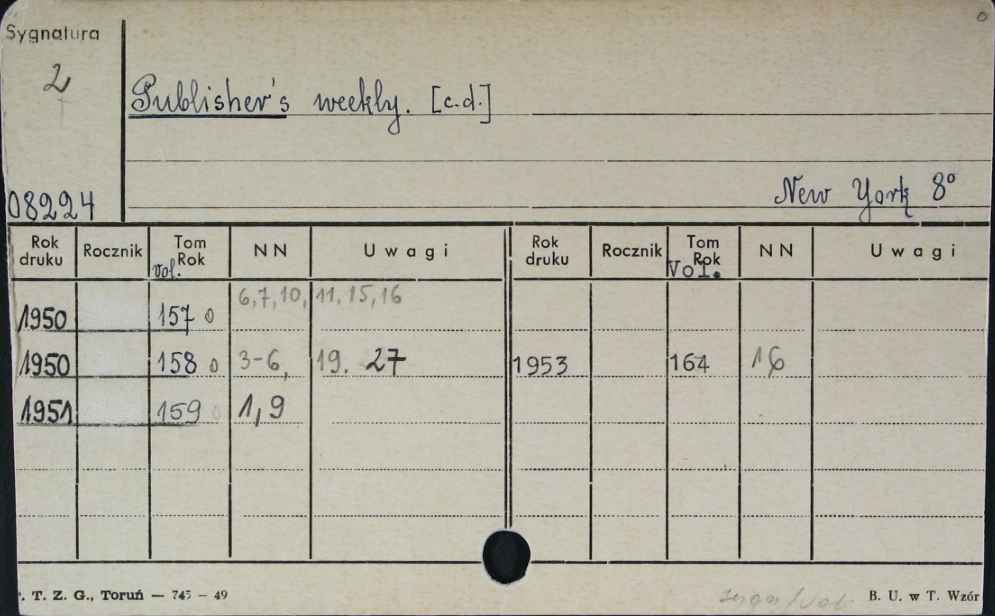 Sygnatura
2
Publisher's weekly. [c.d.]
08224
New York 8°
Rok druku Rocznik Tom Rok vol. NN Uwagi Rok druku Rocznik Tom Rok Vol. NN Uwagi
1950 157 0 6,7,10, 11, 15, 16
1950 158 0 3-6, 19. 27 1953 164 16
1951 159 0 1,9
. T. Z. G., Toruń — 745 - 49
B. U. w T. Wzór